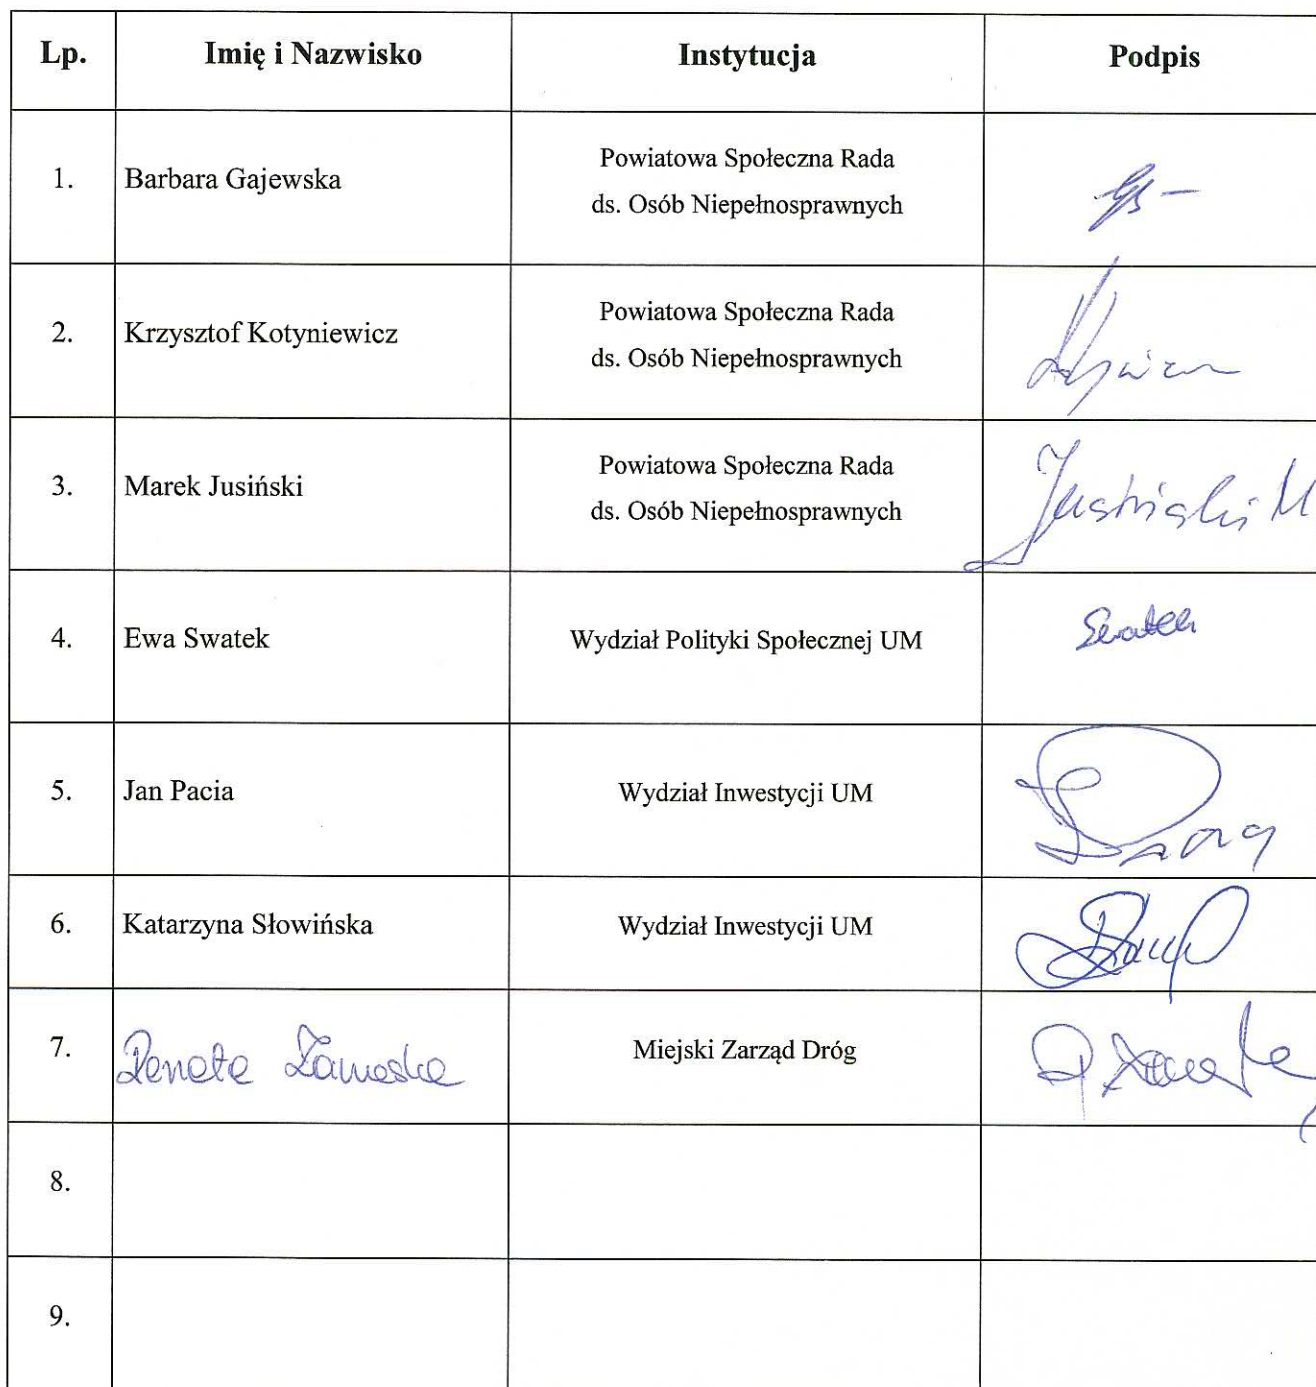 Lp. Imię i Nazwisko Instytucja Podpis
1. Barbara Gajewska Powiatowa Społeczna Rada
ds. Osób Niepełnosprawnych
2. Krzysztof Kotyniewicz Powiatowa Społeczna Rada
ds. Osób Niepełnosprawnych
3. Marek Jusiński Powiatowa Społeczna Rada
ds. Osób Niepełnosprawnych
4. Ewa Swatek Wydział Polityki Społecznej UM Swatek
5. Jan Pacia Wydział Inwestycji UM
6. Katarzyna Słowińska Wydział Inwestycji UM
7. Renata Miejski Zarząd Dróg
8.
9.